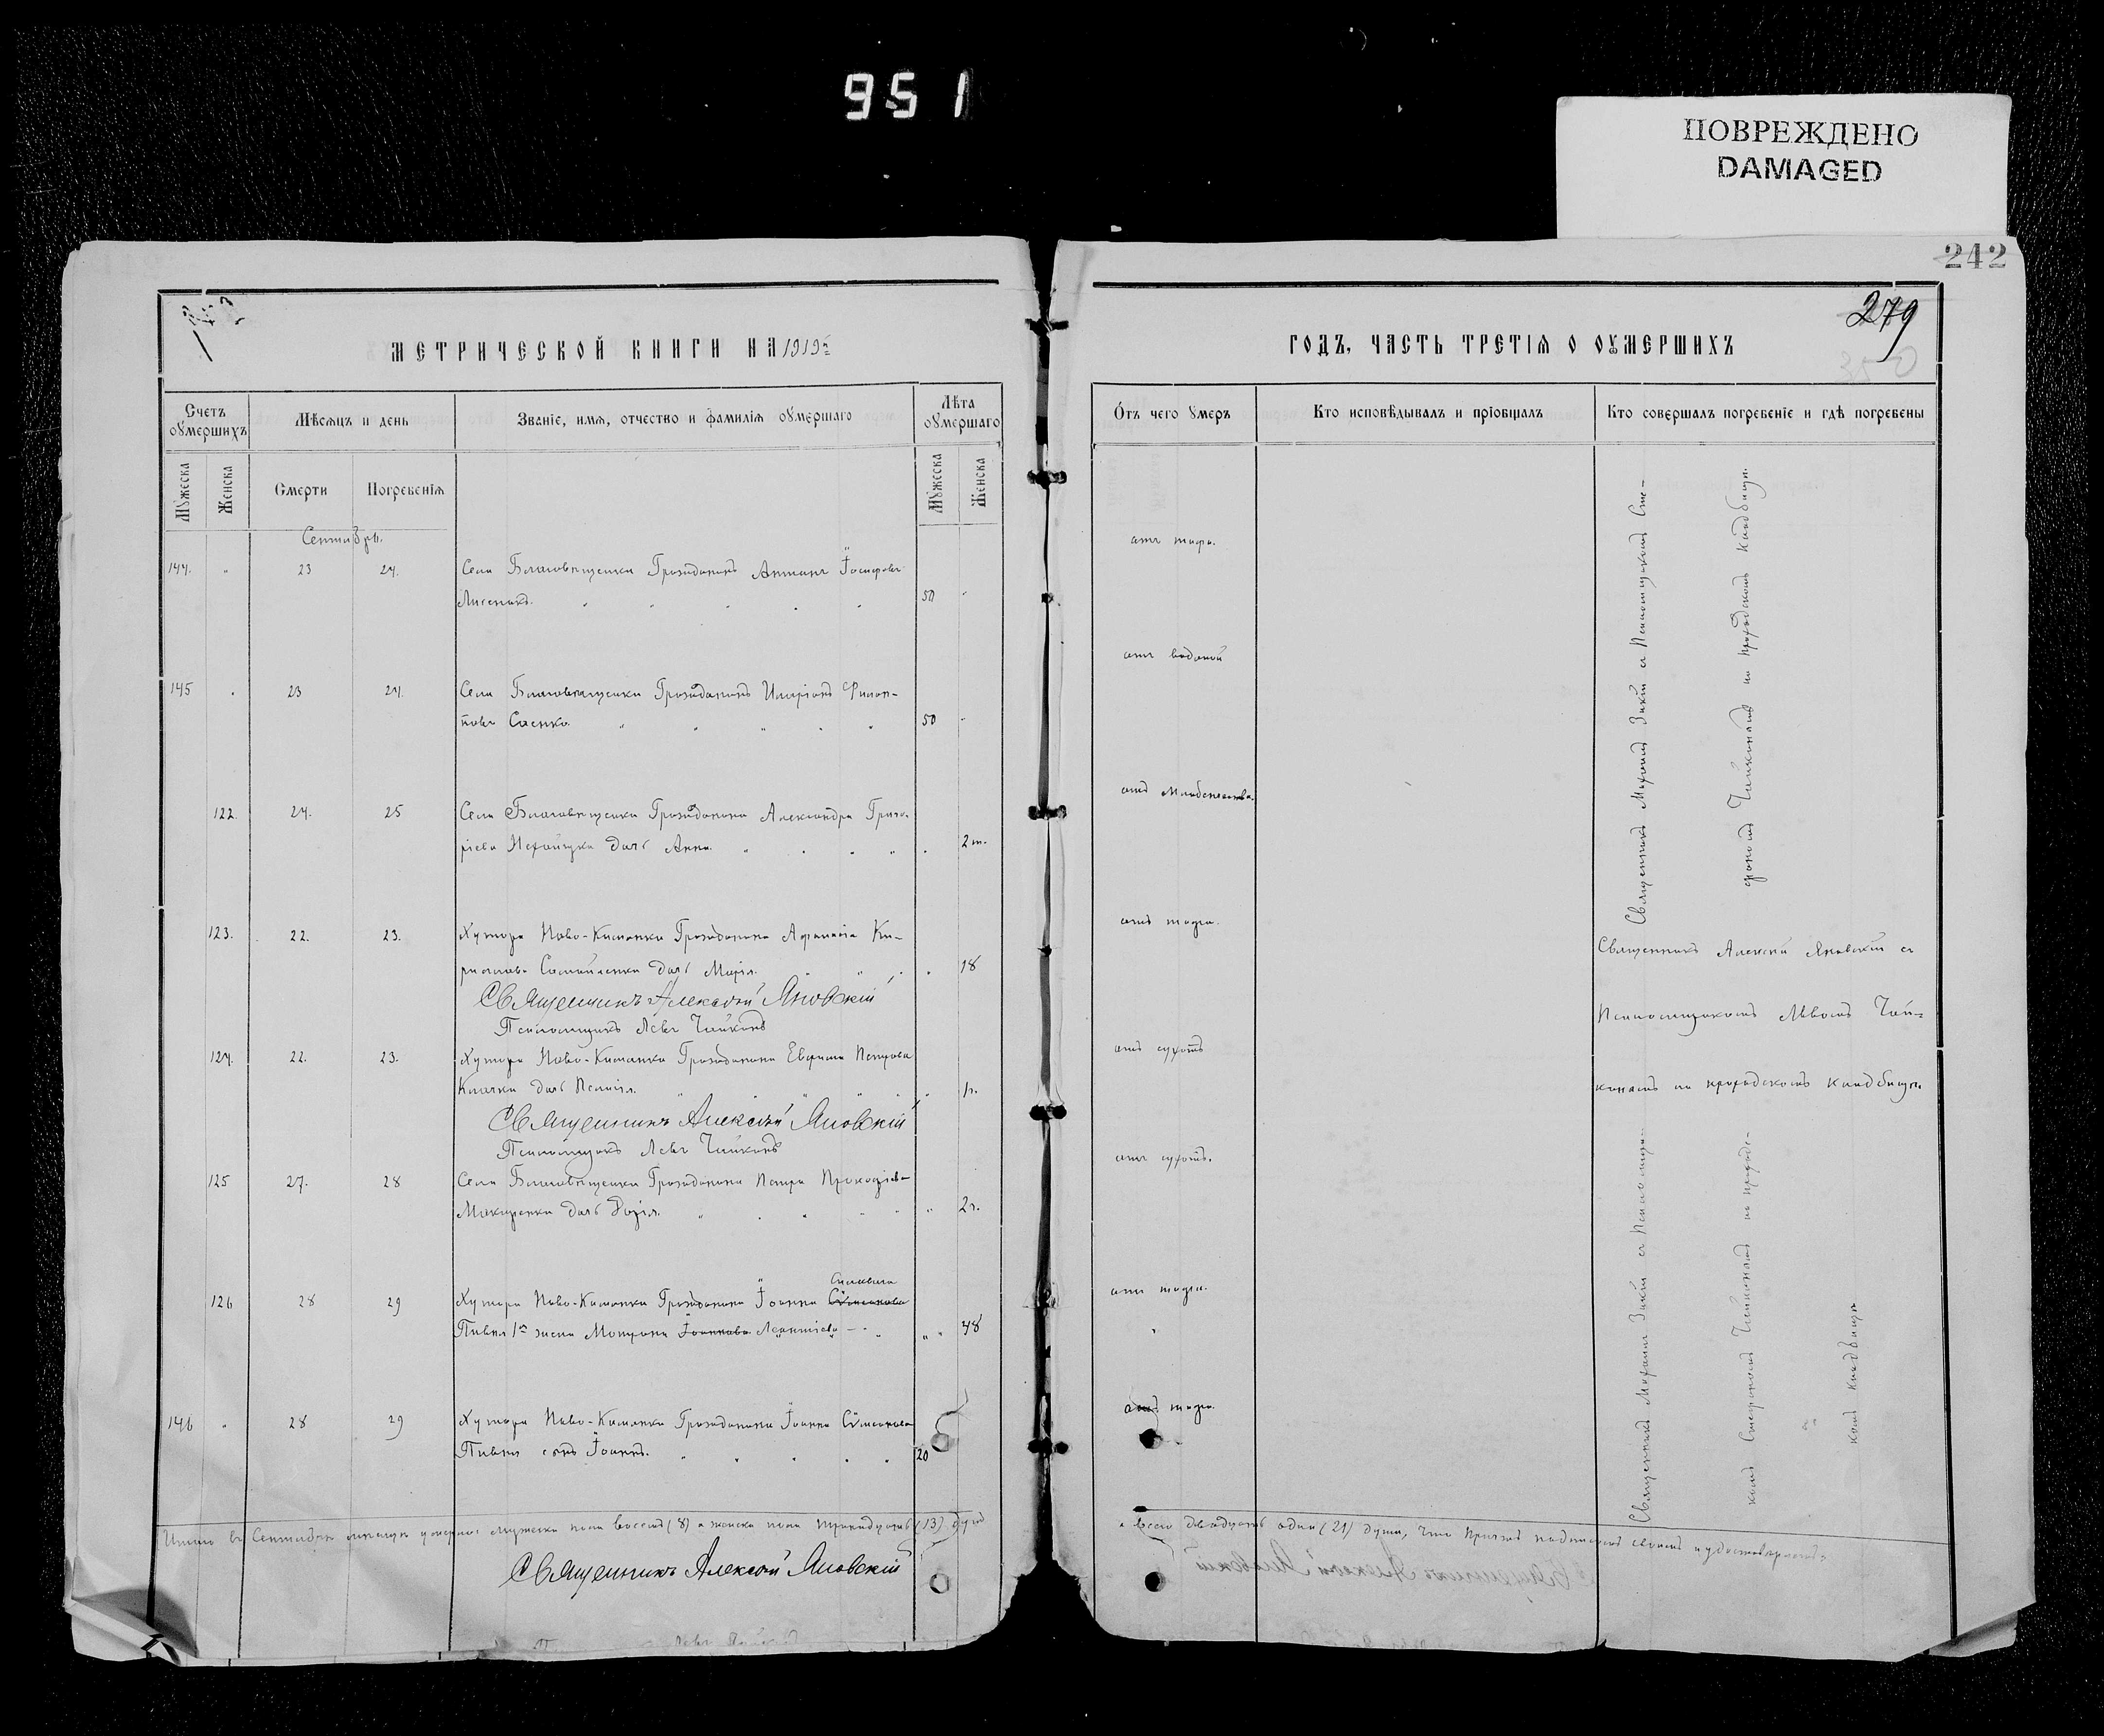 951
ПОВРЕЖДЕНО
DAMAGED
242
279
350
МЕТРИЧЕСКОЙ КНИГИ НА 1919й
Счетъ оумершихъ
Мѣсяцъ и день
Званіе, имя, отчество и фамилія оумершаго
Лѣта оумершаго
Мужеска
Женска
Смерти
Погребенія
Мужеска
Женска
Сентябрь.
144. " 23 24. Села Благовѣщенки Гражданинъ Антонъ Іосифовъ
Лисенко. 50 "
145 " 23 24. Села Благовѣщенки Гражданинъ Иларіонъ Филип-
повъ Саенко. 50 "
122. 24. 25 Села Благовѣщенки Гражданина Александра Григо-
ріева дочь Анна. 2 м.
123. 22. 23. Хутора Ново-Каманки Гражданина Афанасія Ки-
рилова Самойленка дочь Марія. 18
Священникъ Алексѣй Яновскій
Псаломщикъ Левъ Чайконъ
124. 22. 23. Хутора Ново-Каманки Гражданина Ефима Петрова
Клочка дочь 1г.
Священникъ Алексѣй Яновскій
Псаломщикъ Левъ Чайконъ
125 27. 28 Села Благовѣщенки Гражданина Петра Прокофіева
Макаренка дочь Марія. 2 г.
126 28 29 Хутора Ново-Каманки Гражданина Іоанна Симеонова
Пивня 1я жена Леонтіева 48
146 " 28 29 Хутора Ново-Каманки Гражданина Іоанна Симеонова
Пивня сынъ Іоаннъ. 20
Итого въ Сентябрѣ мѣсяцѣ умерло: мужеска пола восемь (8) а женска пола тринадцать (13) душъ
Священникъ Алексѣй Яновскій
ГОДЪ, ЧАСТЬ ТРЕТІЯ О ОУМЕРШИХЪ
Отъ чего умеръ
Кто исповѣдывалъ и пріобщалъ
Кто совершалъ погребеніе и гдѣ погребены
отъ тифа.
отъ водяной
отъ младенчества.
отъ тифа.
отъ сухотъ
отъ сухотъ.
отъ тифа.
отъ тифа.
Священникъ Михаилъ Зикій съ Псаломщикомъ Сте-
фаномъ Чайкинымъ на приходскомъ кладбищѣ.
Священникъ Алексѣй Яновскій съ
Псаломщикомъ Львомъ Чай-
кономъ на приходскомъ кладбищѣ.
Священникъ Михаилъ Зикій съ Псаломщи-
комъ Стефаномъ на приходс-
комъ кладбищѣ
а всего двадцать одна (21) душа, что причтъ подписомъ своимъ и удостовѣряетъ: